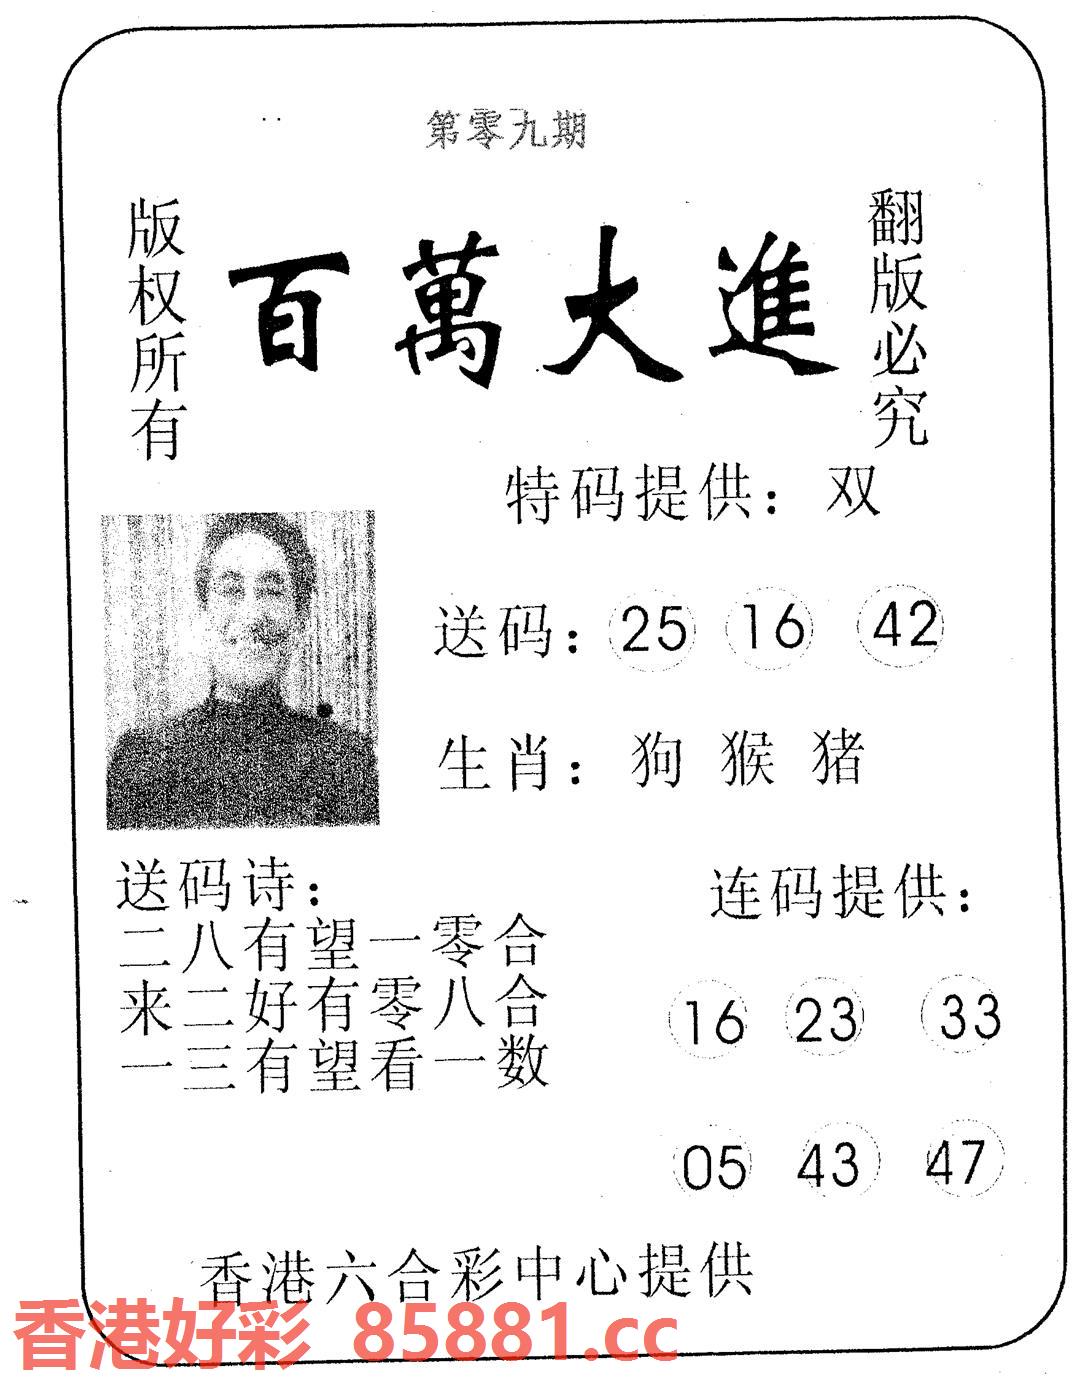 第零九期
版权所有
百萬大進
翻版必究
特码提供：双
送码：25 16 42
生肖：狗 猴 猪
送码诗：
二八有望一零合
来二好有零八合
一三有望看一数
连码提供：
16 23 33
05 43 47
香港六合彩中心提供
香港好彩 85881.cc